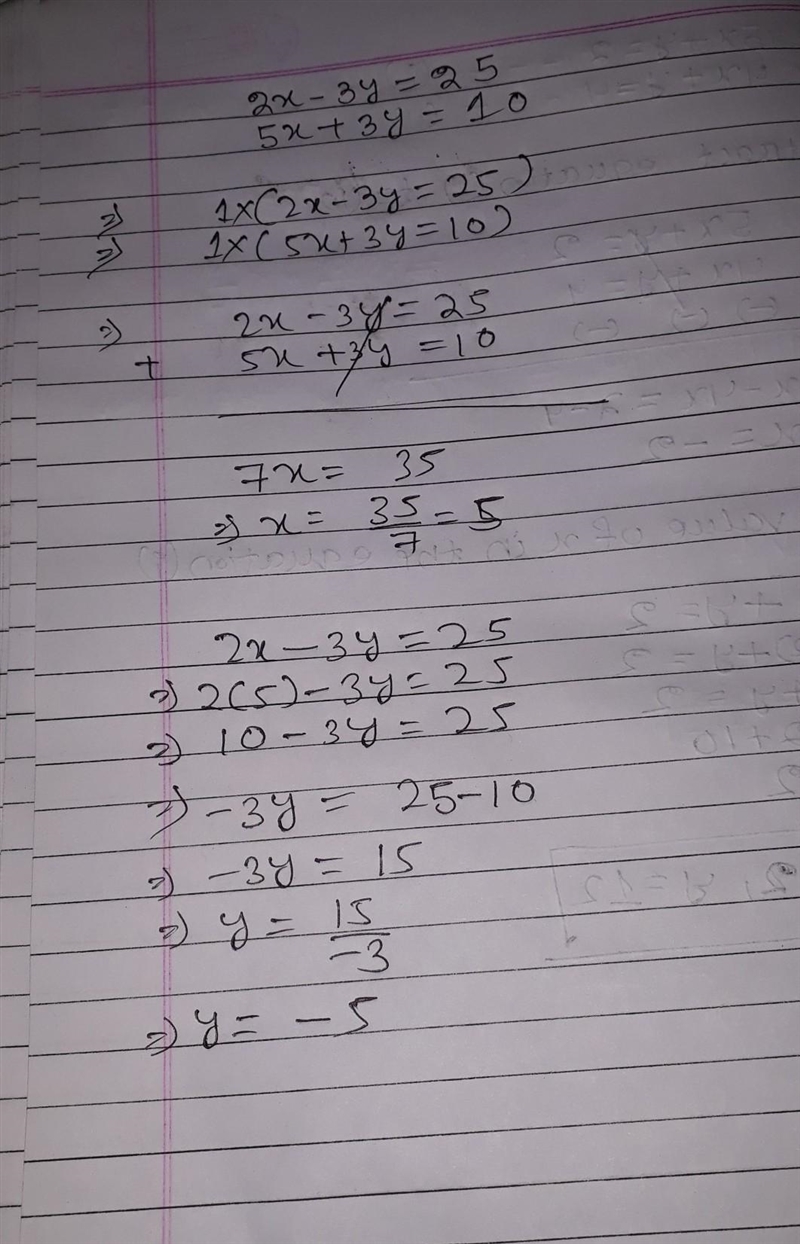 2x - 3y = 25
5x + 3y = 10
⇒ 1×(2x - 3y = 25)
⇒ 1×(5x + 3y = 10)
⇒ 2x - 3y = 25
+ 5x + 3y = 10
7x = 35
⇒ x = 35/7 = 5
2x - 3y = 25
⇒ 2(5) - 3y = 25
⇒ 10 - 3y = 25
⇒ -3y = 25 - 10
⇒ -3y = 15
⇒ y = 15/-3
⇒ y = -5